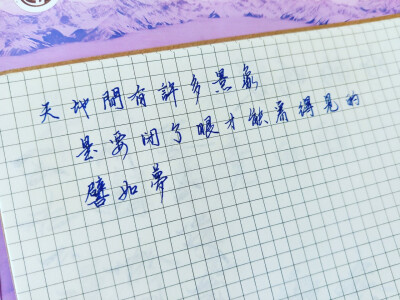 天地間有許多景象
是要閉了眼才能看得見的
譬如夢